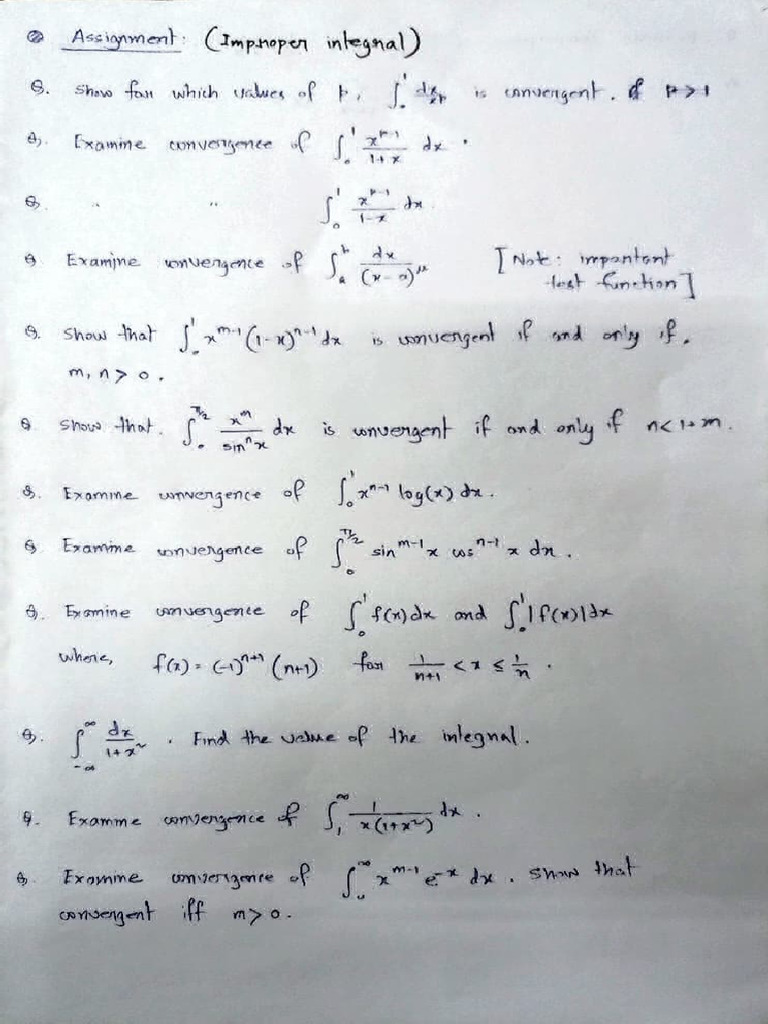 Assignment: (Improper integral)
Q. Show for which values of p, ∫₀¹ dx/xᵖ is convergent. p > 1
Q. Examine convergence of ∫₀¹ x^(p-1)/(1+x) dx.
Q. " " ∫₀¹ x^(p-1)/(1-x) dx.
Q Examine convergence of ∫ₐᵇ dx/(x-a)^μ [Note: important
test function]
Q. Show that ∫₀¹ x^(m-1) (1-x)^(n-1) dx is convergent if and only if.
m, n > 0.
Q Show that. ∫₀^(π/2) x^m/sin^n x dx is convergent if and only if n < 1+m.
Q. Examine convergence of ∫₀¹ x^(n-1) log(x) dx.
Q Examine convergence of ∫₀^(π/2) sin^(m-1) x cos^(n-1) x dx.
Q. Examine convergence of ∫₀¹ f(x) dx and ∫₀¹ |f(x)| dx
where, f(x) = (-1)^(n+1) (n+1) for 1/(n+1) < x ≤ 1/n.
Q. ∫_(-∞)^∞ dx/(1+x²). Find the value of the integral.
Q. Examine convergence of ∫₁^∞ 1/(x(1+x²)) dx.
Q. Examine convergence of ∫₀^∞ x^(m-1) e^(-x) dx. Show that
convergent iff m > 0.